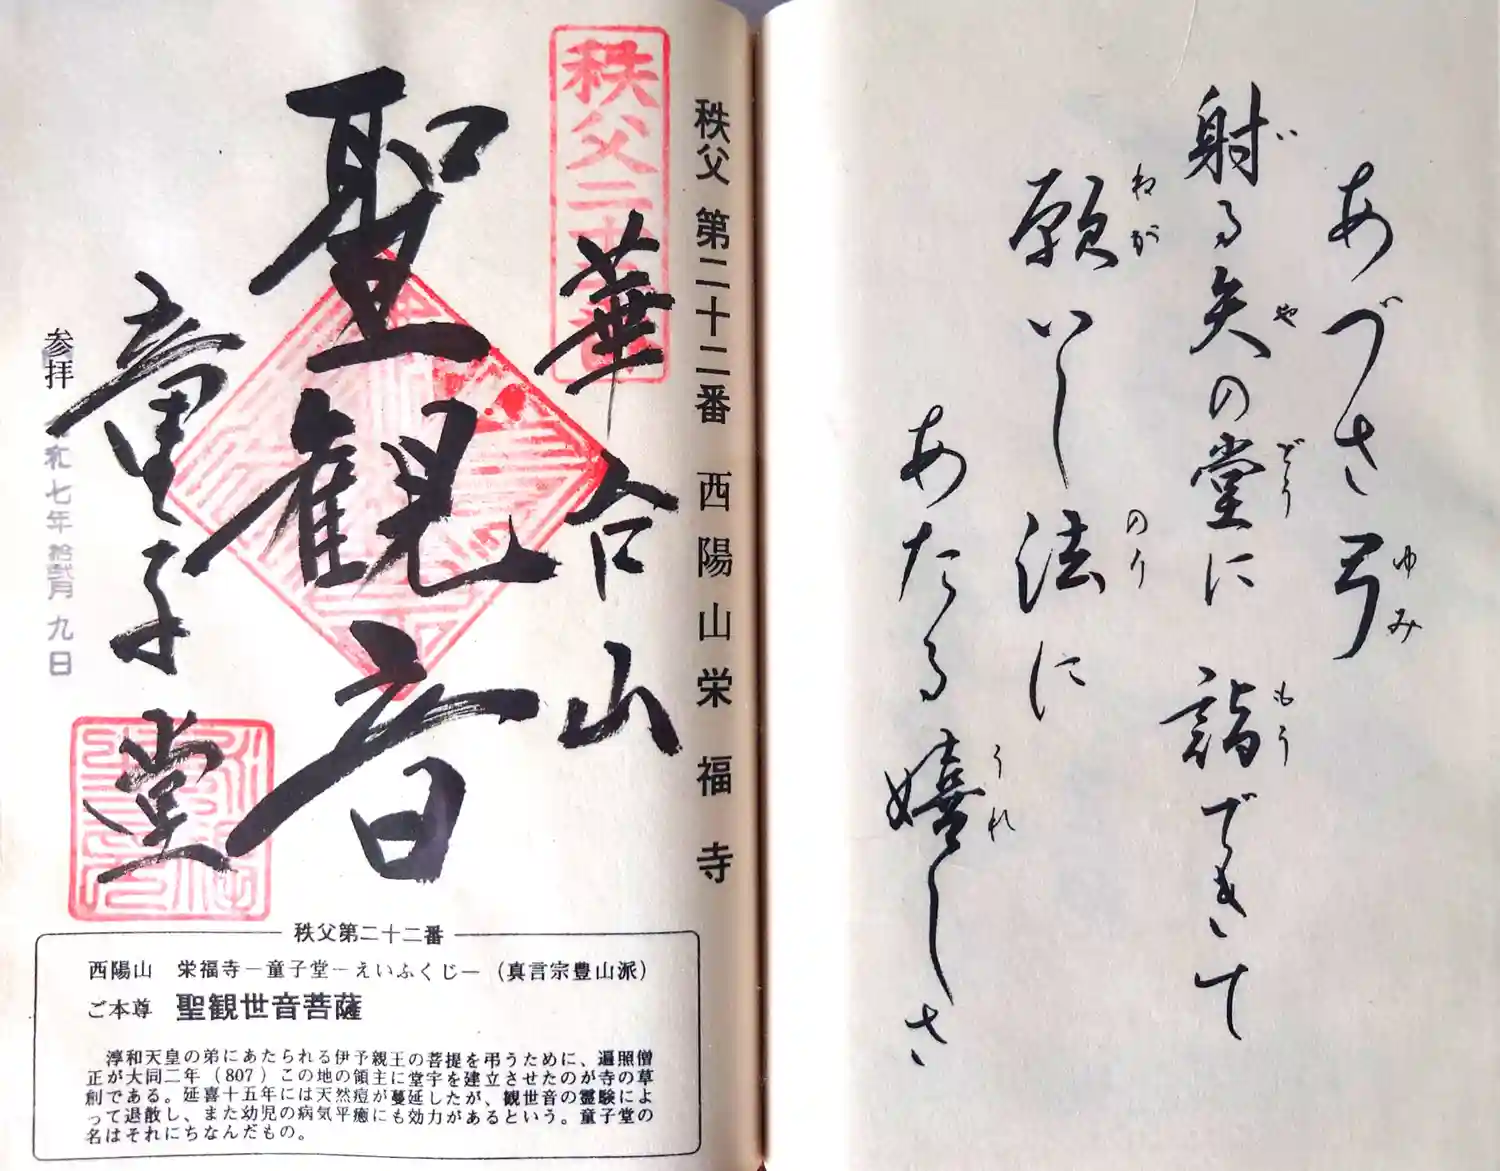 あづさ弓
ゆみ
射る矢の堂に詣できて
いやどうもう
願いし法に
ねがのり
あたる嬉しさ
うれ
秩父 第二十二番 西陽山 栄福寺
秩父二十二番
華台山
聖観音
童子堂
参拝
令和七年拾弐月九日
秩父第二十二番
西陽山 栄福寺－童子堂－えいふくじ－（真言宗豊山派）
ご本尊 聖観世音菩薩
淳和天皇の弟にあたられる伊予親王の菩提を弔うために、遍照僧
正が大同二年（807）この地の領主に堂宇を建立させたのが寺の草
創である。延喜十五年には天然痘が蔓延したが、観世音の霊験によ
って退散し、また幼児の病気平癒にも効力があるという。童子堂の
名はそれにちなんだもの。